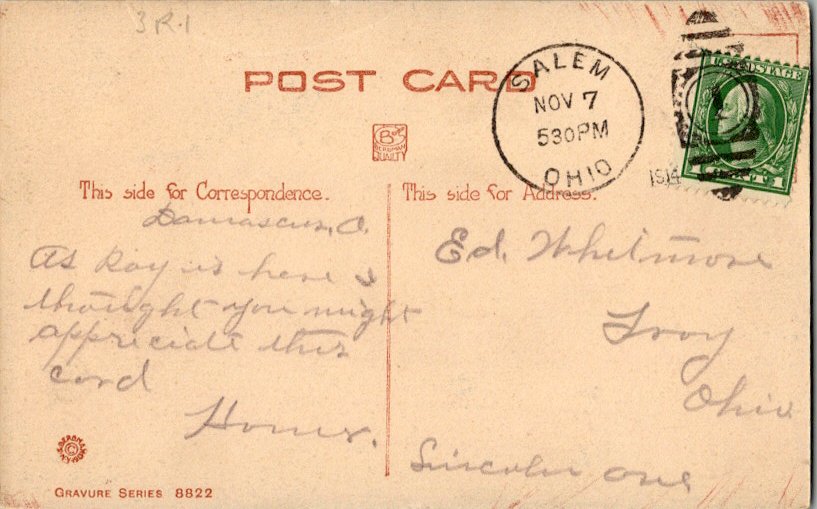 3R.1
POST CARD
SALEM
NOV 7
530PM
OHIO
1914
U.S. POSTAGE
1 CENT 1
BERGMAN
QUALITY
This side for Correspondence.
This side for Address.
Damascus, O.
As Ray is here I
thought you might
appreciate this
card
Homer.
Ed. Whitmore
Troy
Ohio
Lincoln Ave
GRAVURE SERIES 8822